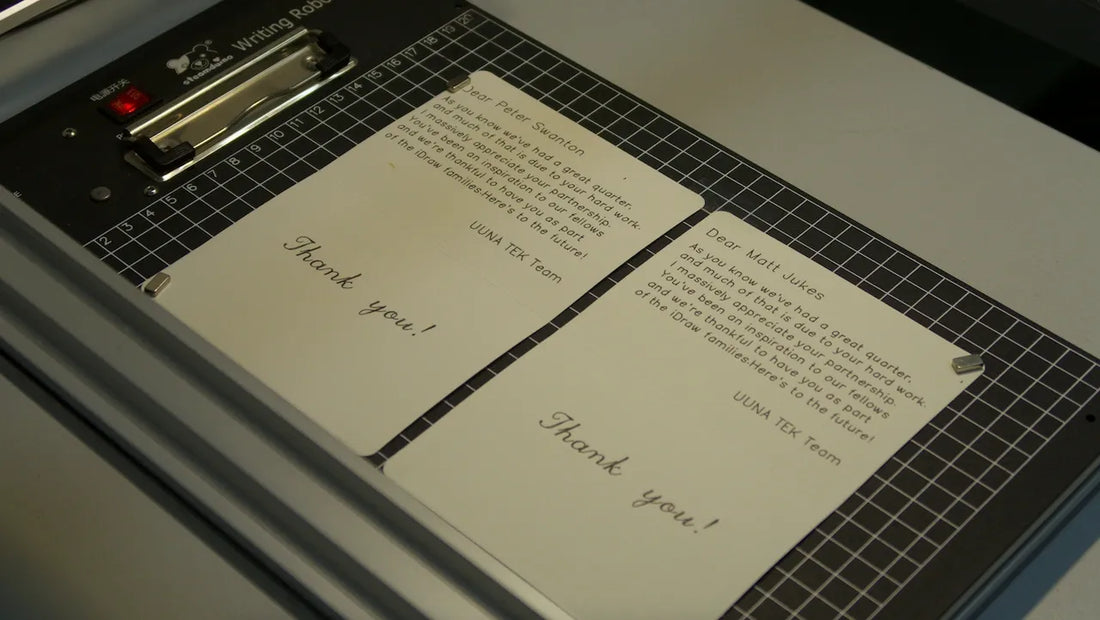 Writing Robo
steendama
电源开关
2 3 4 5 6 7 8 9 10 11 12 13 14 15 16 17 18 19 20
Dear Peter Swanton
As you know we've had a great quarter,
and much of that is due to your hard work.
I massively appreciate your partnership.
You've been an inspiration to our fellows
and we're thankful to have you as part
of the iDraw families.Here's to the future!
UUNA TEK Team
Thank you!
Dear Matt Jukes
As you know we've had a great quarter,
and much of that is due to your hard work.
I massively appreciate your partnership.
You've been an inspiration to our fellows
and we're thankful to have you as part
of the iDraw families.Here's to the future!
UUNA TEK Team
Thank you!